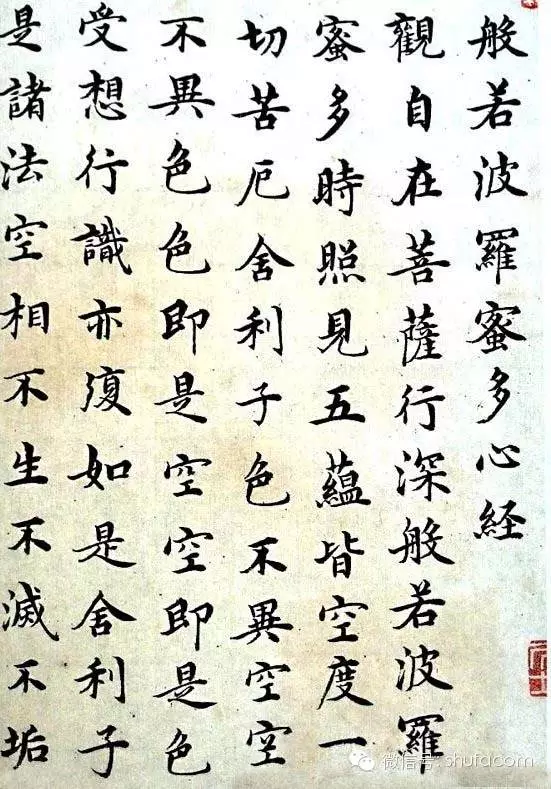 般若波羅蜜多心経
觀自在菩薩行深般若波羅
蜜多時照見五蘊皆空度一
切苦厄舍利子色不異空空
不異色色即是空空即是色
受想行識亦復如是舍利子
是諸法空相不生不滅不垢
微信号: shufacom